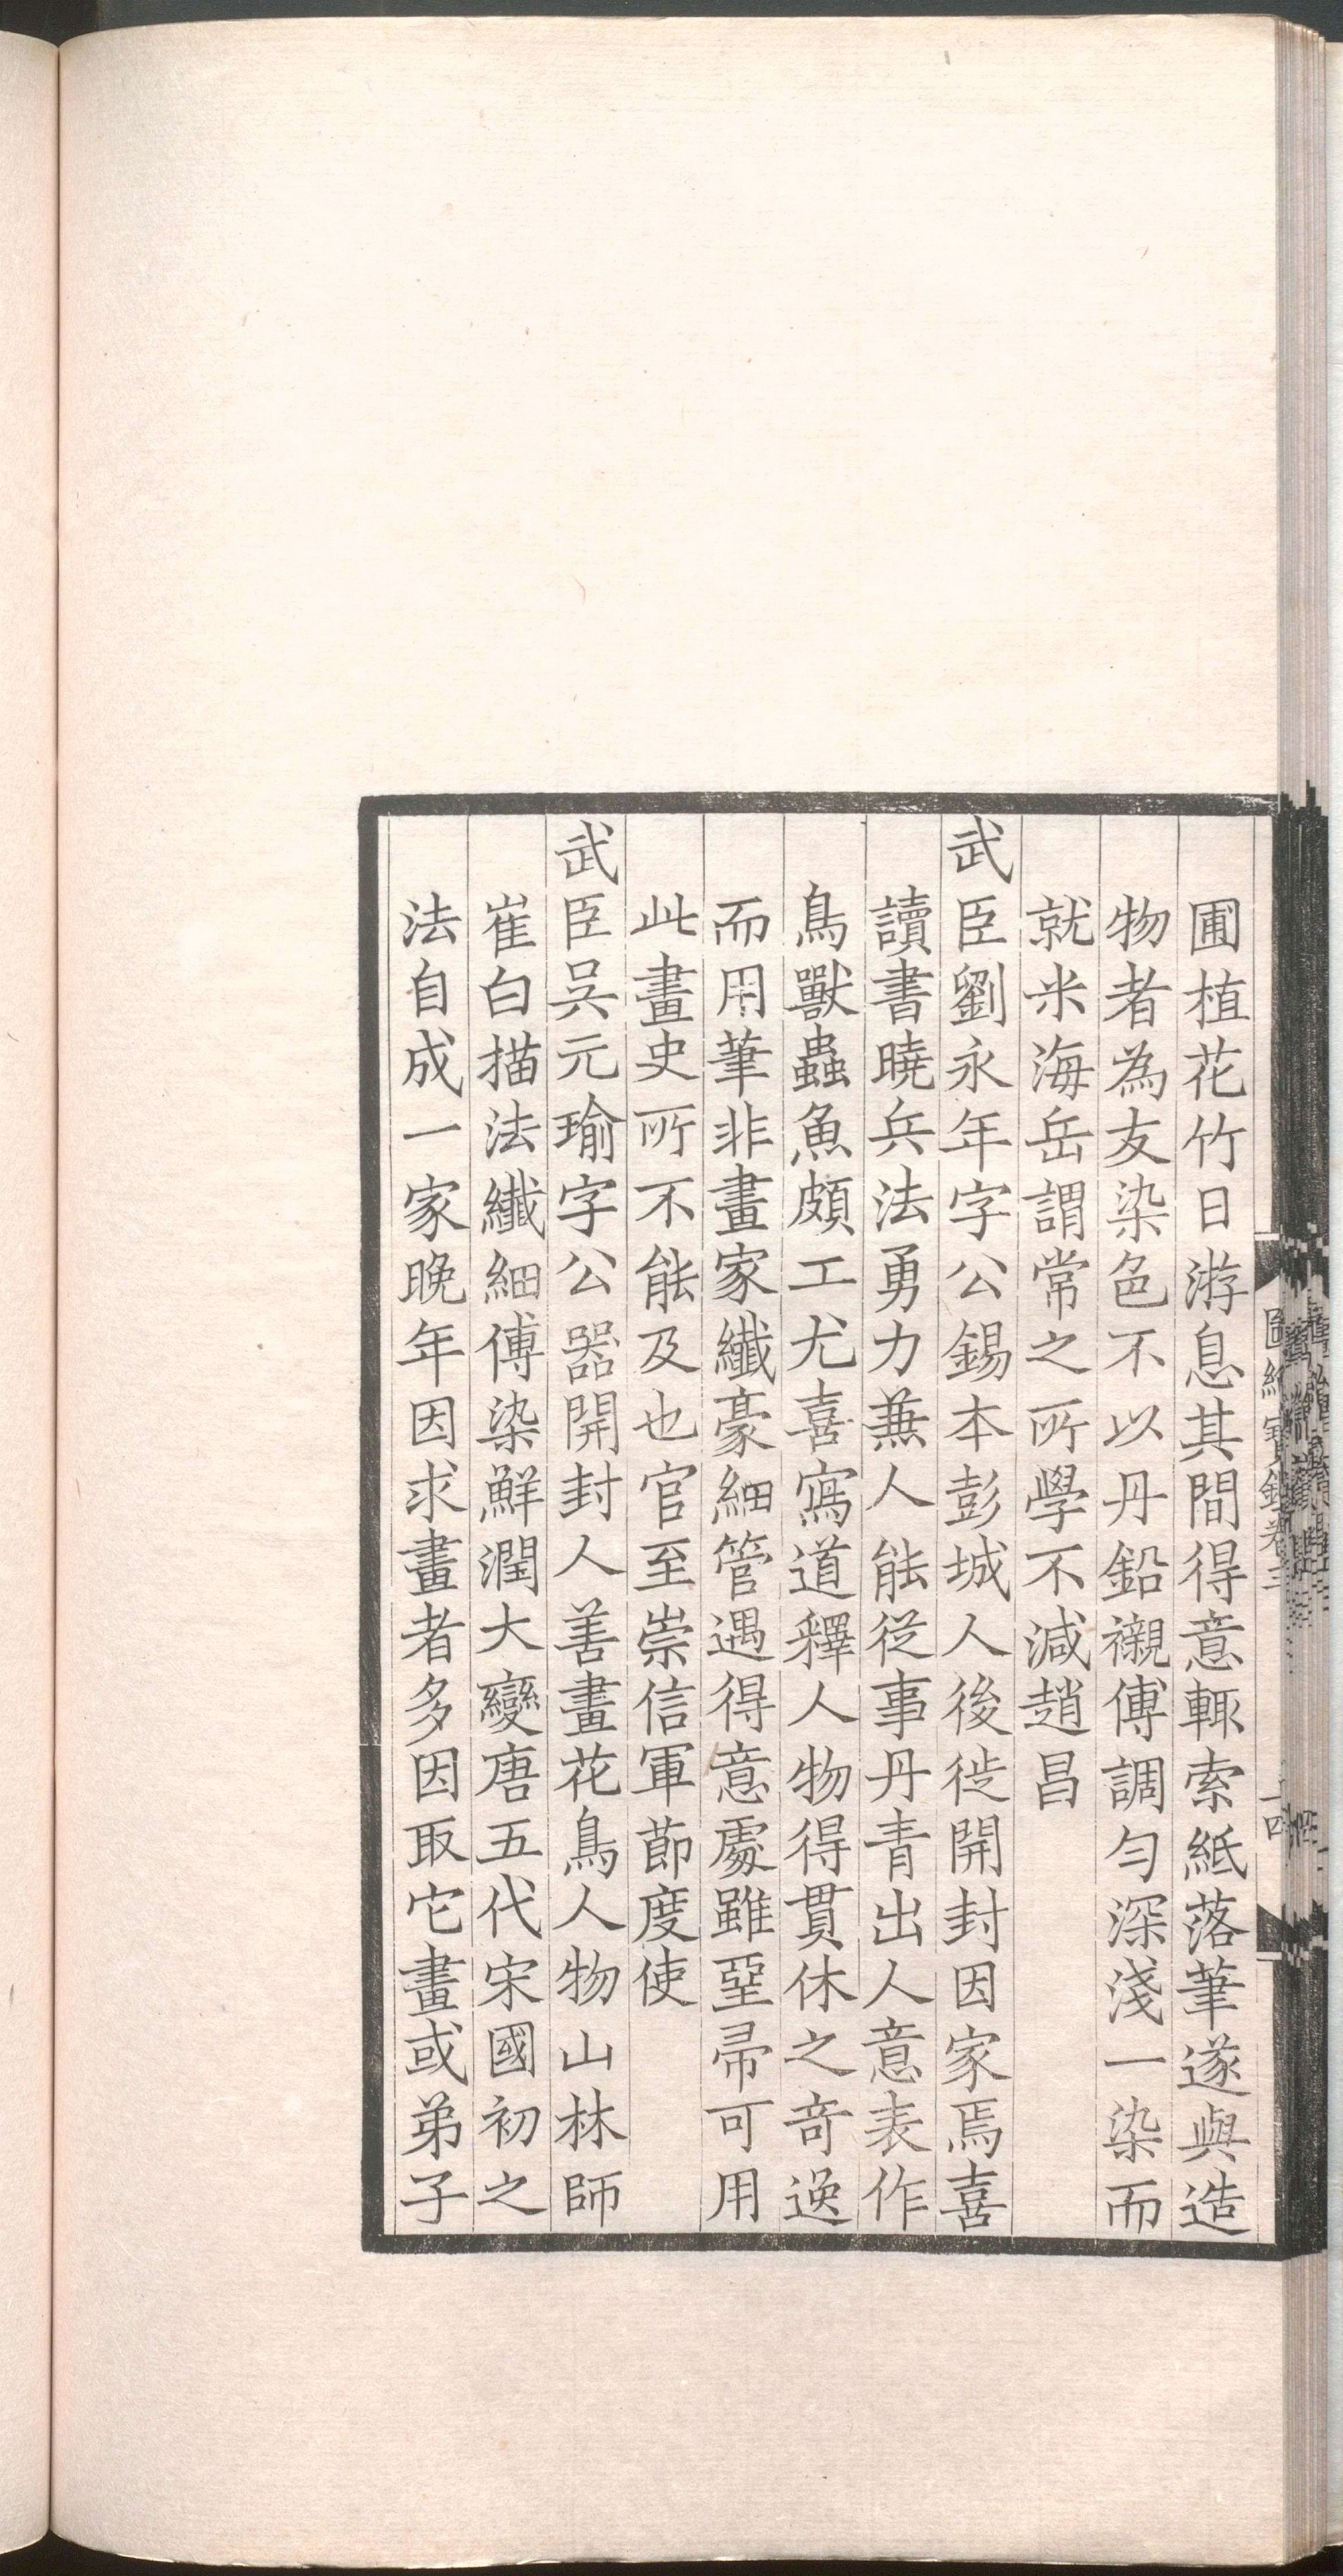 圃植花竹日游息其間得意輒索紙落筆遂與造
物者為友染色不以丹鉛襯傅調勻深淺一染而
就米海岳謂常之所學不減趙昌
武臣劉永年字公錫本彭城人後徙開封因家焉喜
讀書曉兵法勇力蕪人能從事丹青出人意表作
鳥獸蟲魚頗工尤喜寫道釋人物得貫休之奇逸
而用筆非畫家纖豪細管遇得意處雖堊帚可用
此畫史所不能及也官至崇信軍節度使
武臣吳元瑜字公器開封人善畫花鳥人物山林師
崔白描法纖細傅染鮮潤大變唐五代宋國初之
法自成一家晚年因求畫者多因取它畫或弟子